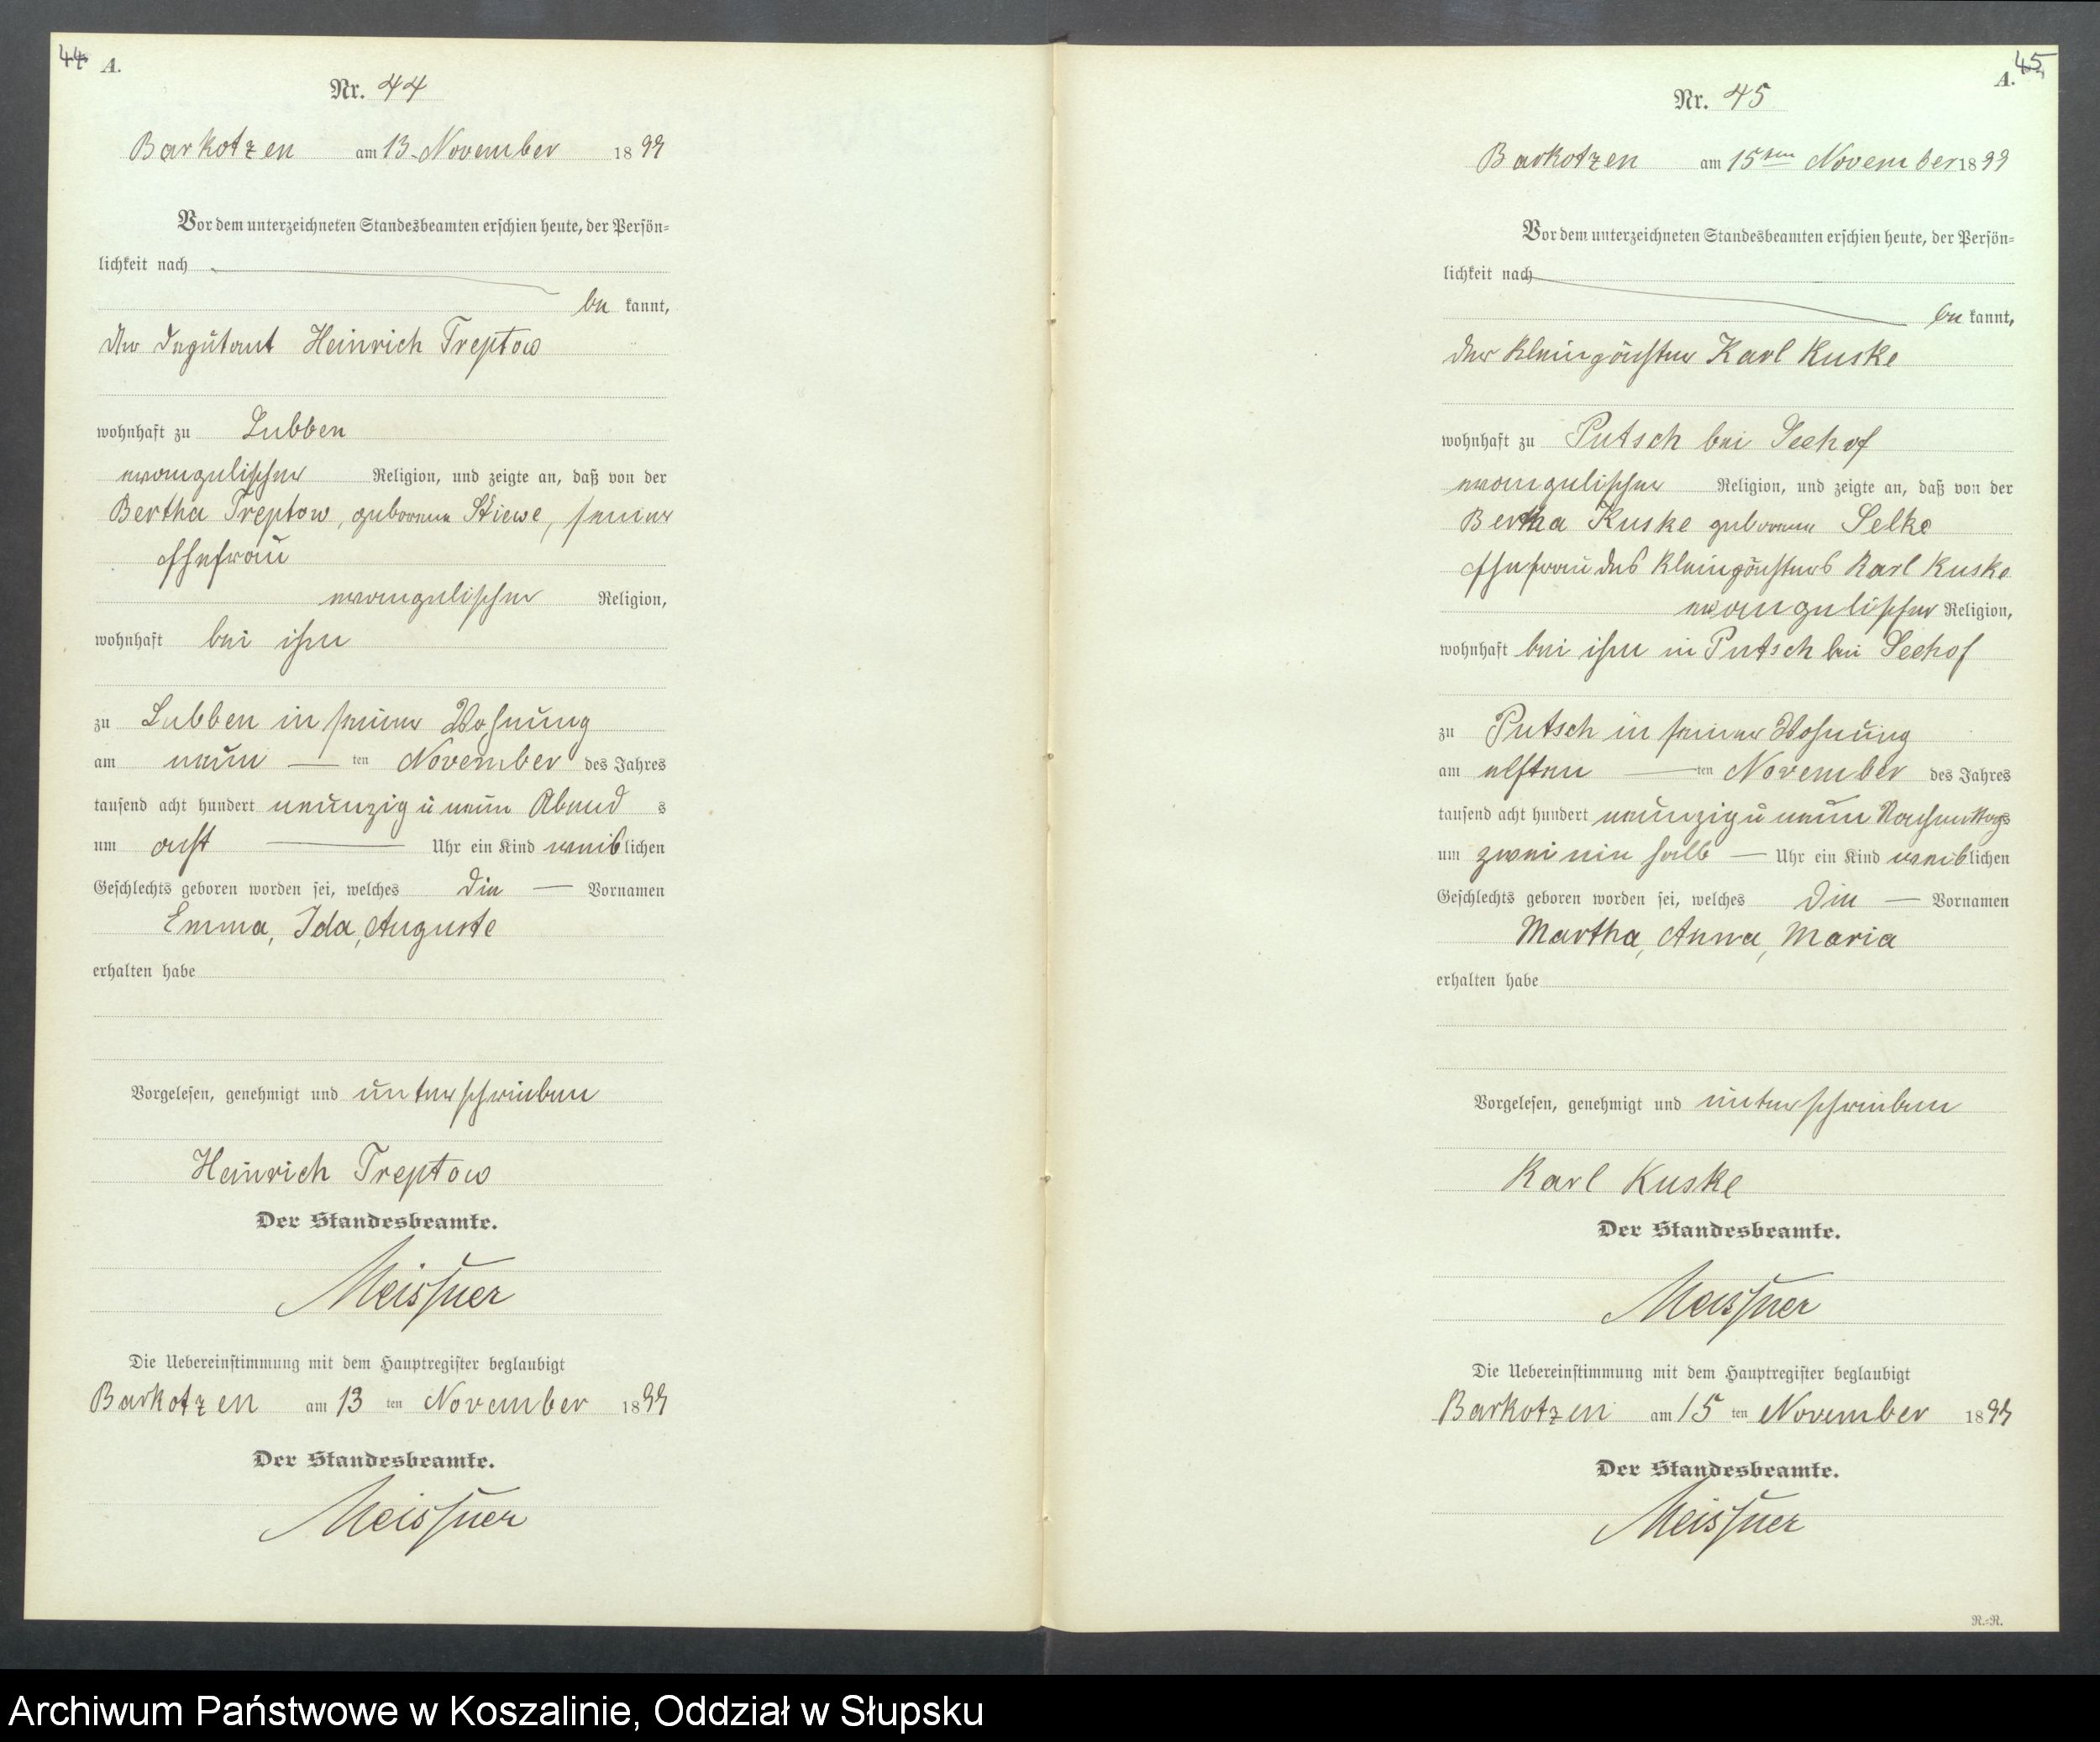 44 A.
Nr. 44
Barkotzen am 13. November 1899
Vor dem unterzeichneten Standesbeamten erschien heute, der Persön-
lichkeit nach
be kannt,
der Deputant Heinrich Treptow
wohnhaft zu Lubben
evangelischer Religion, und zeigte an, daß von der
Bertha Treptow, geborene Stiewe, seiner
Ehefrau
evangelischer Religion,
wohnhaft bei ihm
zu Lubben in seiner Wohnung
am neun ten November des Jahres
tausend acht hundert neunzig u neun Abend s
um acht Uhr ein Kind weiblichen
Geschlechts geboren worden sei, welches die Vornamen
Emma, Ida, Auguste
erhalten habe
Vorgelesen, genehmigt und unterschrieben
Heinrich Treptow
Der Standesbeamte.
Meissner
Die Uebereinstimmung mit dem Hauptregister beglaubigt
Barkotzen am 13 ten November 1899
Der Standesbeamte.
Meissner
A. 45
Nr. 45
Barkotzen am 15ten November 1899
Vor dem unterzeichneten Standesbeamten erschien heute, der Persön-
lichkeit nach
be kannt,
der Kleinpächter Karl Kuske
wohnhaft zu Putsch bei Seehof
evangelischer Religion, und zeigte an, daß von der
Bertha Kuske geborene Selke
Ehefrau des Kleinpächters Karl Kuske
evangelischer Religion,
wohnhaft bei ihm in Putsch bei Seehof
zu Putsch in seiner Wohnung
am elften ten November des Jahres
tausend acht hundert neunzig u neun Nachmittags
um zwei ein halb Uhr ein Kind weiblichen
Geschlechts geboren worden sei, welches die Vornamen
Martha, Anna, Maria
erhalten habe
Vorgelesen, genehmigt und unterschrieben
Karl Kuske
Der Standesbeamte.
Meissner
Die Uebereinstimmung mit dem Hauptregister beglaubigt
Barkotzen am 15 ten November 1899
Der Standesbeamte.
Meissner
R.-R.
Archiwum Państwowe w Koszalinie, Oddział w Słupsku